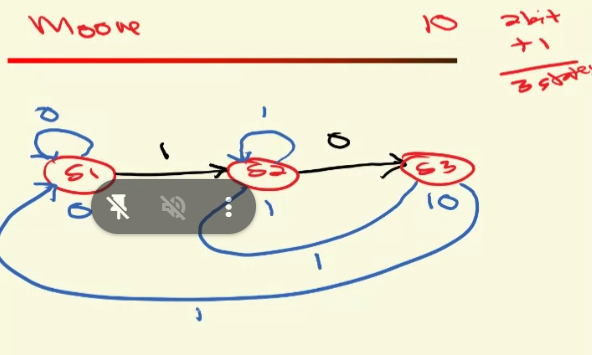 Moore 10 2bit
+1
3 states
0 1 1 0
S1 S2 S3
0 1 10
1
1